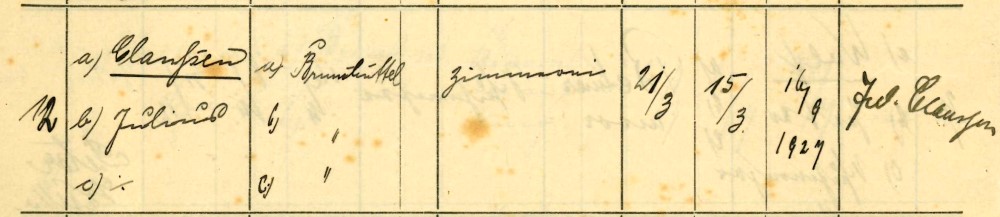 12
a) Claussen
b) Julius
c) ·/.
a) Brunsbüttel
b) "
c) "
21/3
15/3
16/9
1927
Jul. Claussen